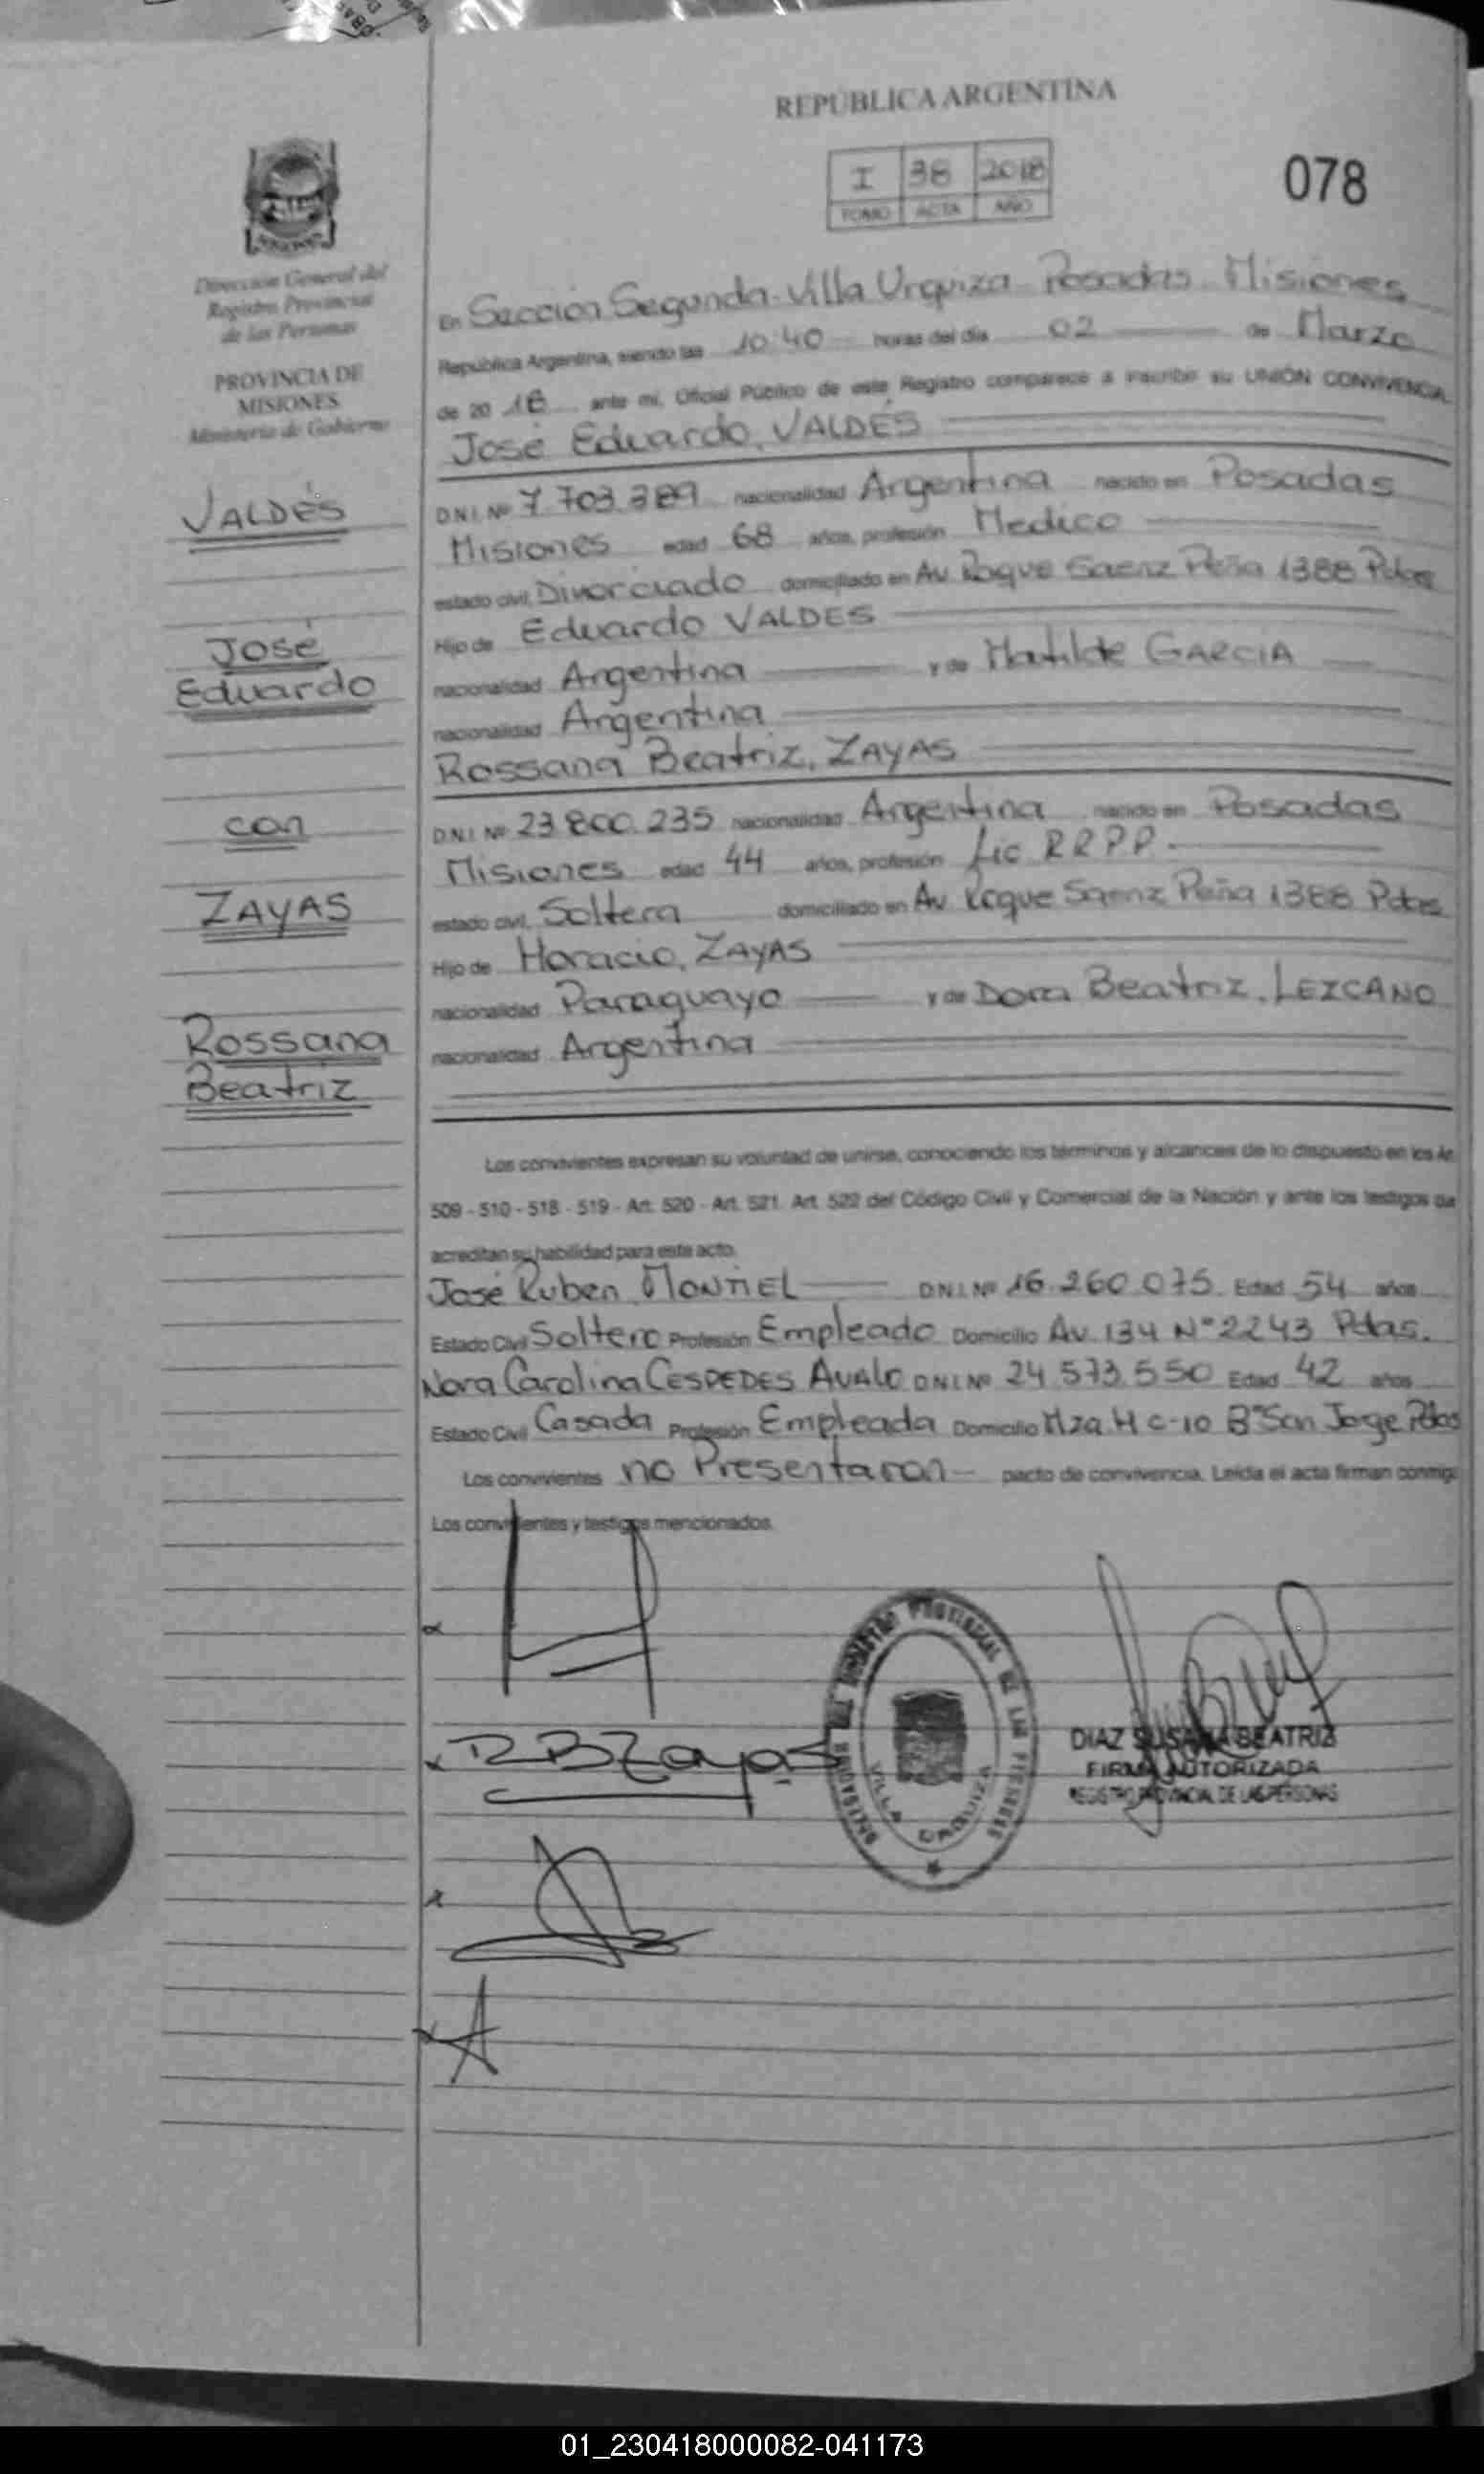 REPÚBLICA ARGENTINA
I 38 2018
TOMO ACTA AÑO
078
Dirección General del
Registro Provincial
de las Personas
PROVINCIA DE
MISIONES
Ministerio de Gobierno
En Sección Segunda-Villa Urquiza-Posadas-Misiones
República Argentina, siendo las 10:40 horas del día 02 de Marzo
de 2018 ante mi, Oficial Público de este Registro comparece a inscribir su UNIÓN CONVIVENCIA
José Eduardo, VALDÉS
D.N.I. Nº 7.703.389 nacionalidad Argentina nacido en Posadas
Misiones edad 68 años, profesión Medico
estado civil, Divorciado domiciliado en Av. Roque Saenz Peña 1388 Pdas
Hijo de Eduardo VALDES
nacionalidad Argentina y de Matilde GARCIA
nacionalidad Argentina
Rossana Beatriz, ZAYAS
D.N.I. Nº 23.800.235 nacionalidad Argentina nacido en Posadas
Misiones edad 44 años, profesión Lic. RRPP.
estado civil, Soltera domiciliado en Av Roque Saenz Peña 1388 Pdas
Hijo de Horacio, ZAYAS
nacionalidad Paraguayo y de Dora Beatriz, LEZCANO
nacionalidad Argentina
VALDÉS
José
Eduardo
con
ZAYAS
Rossana
Beatriz
Los convivientes expresan su voluntad de unirse, conociendo los términos y alcances de lo dispuesto en los Ar
509 - 510 - 518 - 519 - Art. 520 - Art. 521. Art. 522 del Código Civil y Comercial de la Nación y ante los testigos que
acreditan su habilidad para este acto.
José Ruben MONTIEL D.N.I. Nº 16.260.075 Edad 54 años
Estado Civil Soltero Profesión Empleado Domicilio Av. 134 Nº 2243 Pdas.
Nora Carolina CESPEDES AVALO D.N.I. Nº 24.573.550 Edad 42 años
Estado Civil Casada Profesión Empleada Domicilio Mza. H c-10 Bº San Jorge Pdas
Los convivientes no Presentaron pacto de convivencia. Leída el acta firman conmigo
Los convivientes y testigos mencionados.
RBZayas
REGISTRO PROVINCIAL DE LAS PERSONAS
VILLA URQUIZA
DIAZ SUSANA BEATRIZ
FIRMA AUTORIZADA
REGISTRO PROVINCIAL DE LAS PERSONAS
01_230418000082-041173